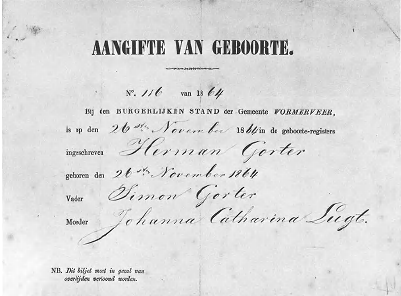 AANGIFTE VAN GEBOORTE.
N°. 116 van 1864
Bij den BURGERLIJKEN STAND der Gemeente WORMERVEER,
is op den 26sten November 1864 in de geboorte-registers
ingeschreven Herman Gorter
geboren den 26sten November 1864
Vader Simon Gorter
Moeder Johanna Catharina Lugt.
NB. Dit biljet moet in geval van
overlijden vertoond worden.